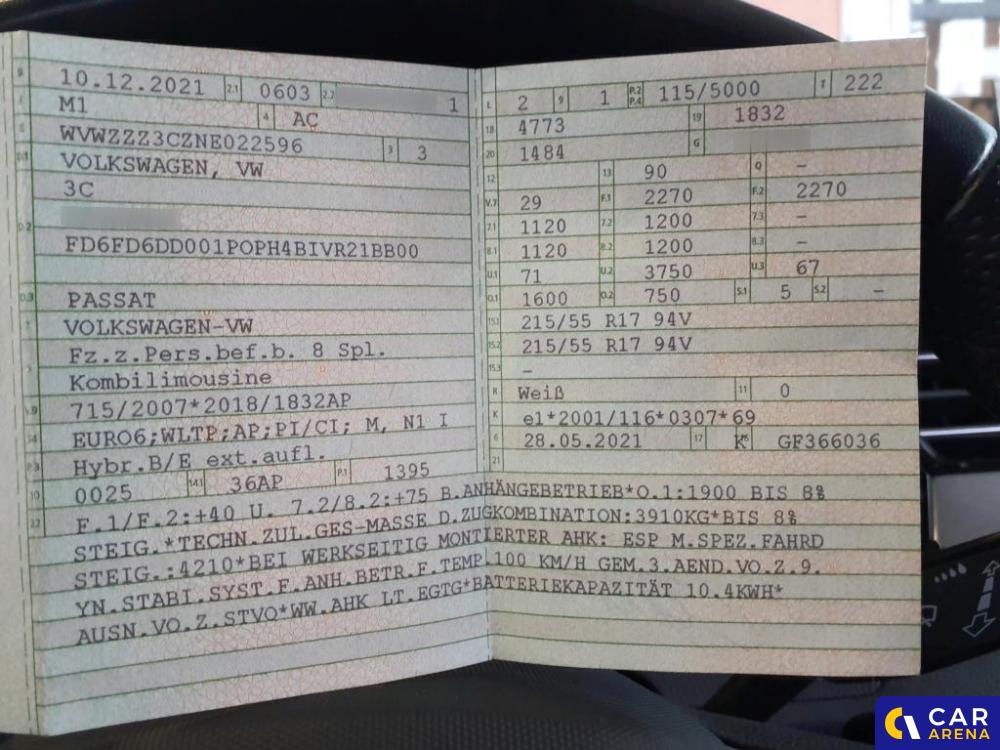 B 10.12.2021 2.1 0603 2.2 1
J M1 4 AC
E WVWZZZ3CZNE022596 3 3
D.1 VOLKSWAGEN, VW
3C
D.2
FD6FD6DD001POPH4BIVR21BB00
D.3 PASSAT
2 VOLKSWAGEN-VW
Fz.z.Pers.bef.b. 8 Spl.
5 Kombilimousine
V.9 715/2007*2018/1832AP
14 EURO6;WLTP;AP;PI/CI; M, N1 I
P.3 Hybr.B/E ext.aufl.
10 0025 14.1 36AP P.1 1395
L 2 9 1 P.2 P.4 115/5000 T 222
18 4773 19 1832
20 1484 G
12 13 90 Q –
V.7 29 F.1 2270 F.2 2270
7.1 1120 7.2 1200 7.3 –
8.1 1120 8.2 1200 8.3 –
U.1 71 U.2 3750 U.3 67
O.1 1600 O.2 750 S.1 5 S.2 –
15.1 215/55 R17 94V
15.2 215/55 R17 94V
15.3 –
R Weiß 11 0
K e1*2001/116*0307*69
6 28.05.2021 17 K 16 GF366036
21
22 F.1/F.2:+40 U. 7.2/8.2:+75 B.ANHÄNGEBETRIEB*O.1:1900 BIS 8%
STEIG.*TECHN.ZUL.GES-MASSE D.ZUGKOMBINATION:3910KG*BIS 8%
STEIG.:4210*BEI WERKSEITIG MONTIERTER AHK: ESP M.SPEZ.FAHRD
YN.STABI.SYST.F.ANH.BETR.F.TEMP.100 KM/H GEM.3.AEND.VO.Z.9.
AUSN.VO.Z.STVO*WW.AHK LT.EGTG*BATTERIEKAPAZITÄT 10.4KWH*
CAR
ARENA